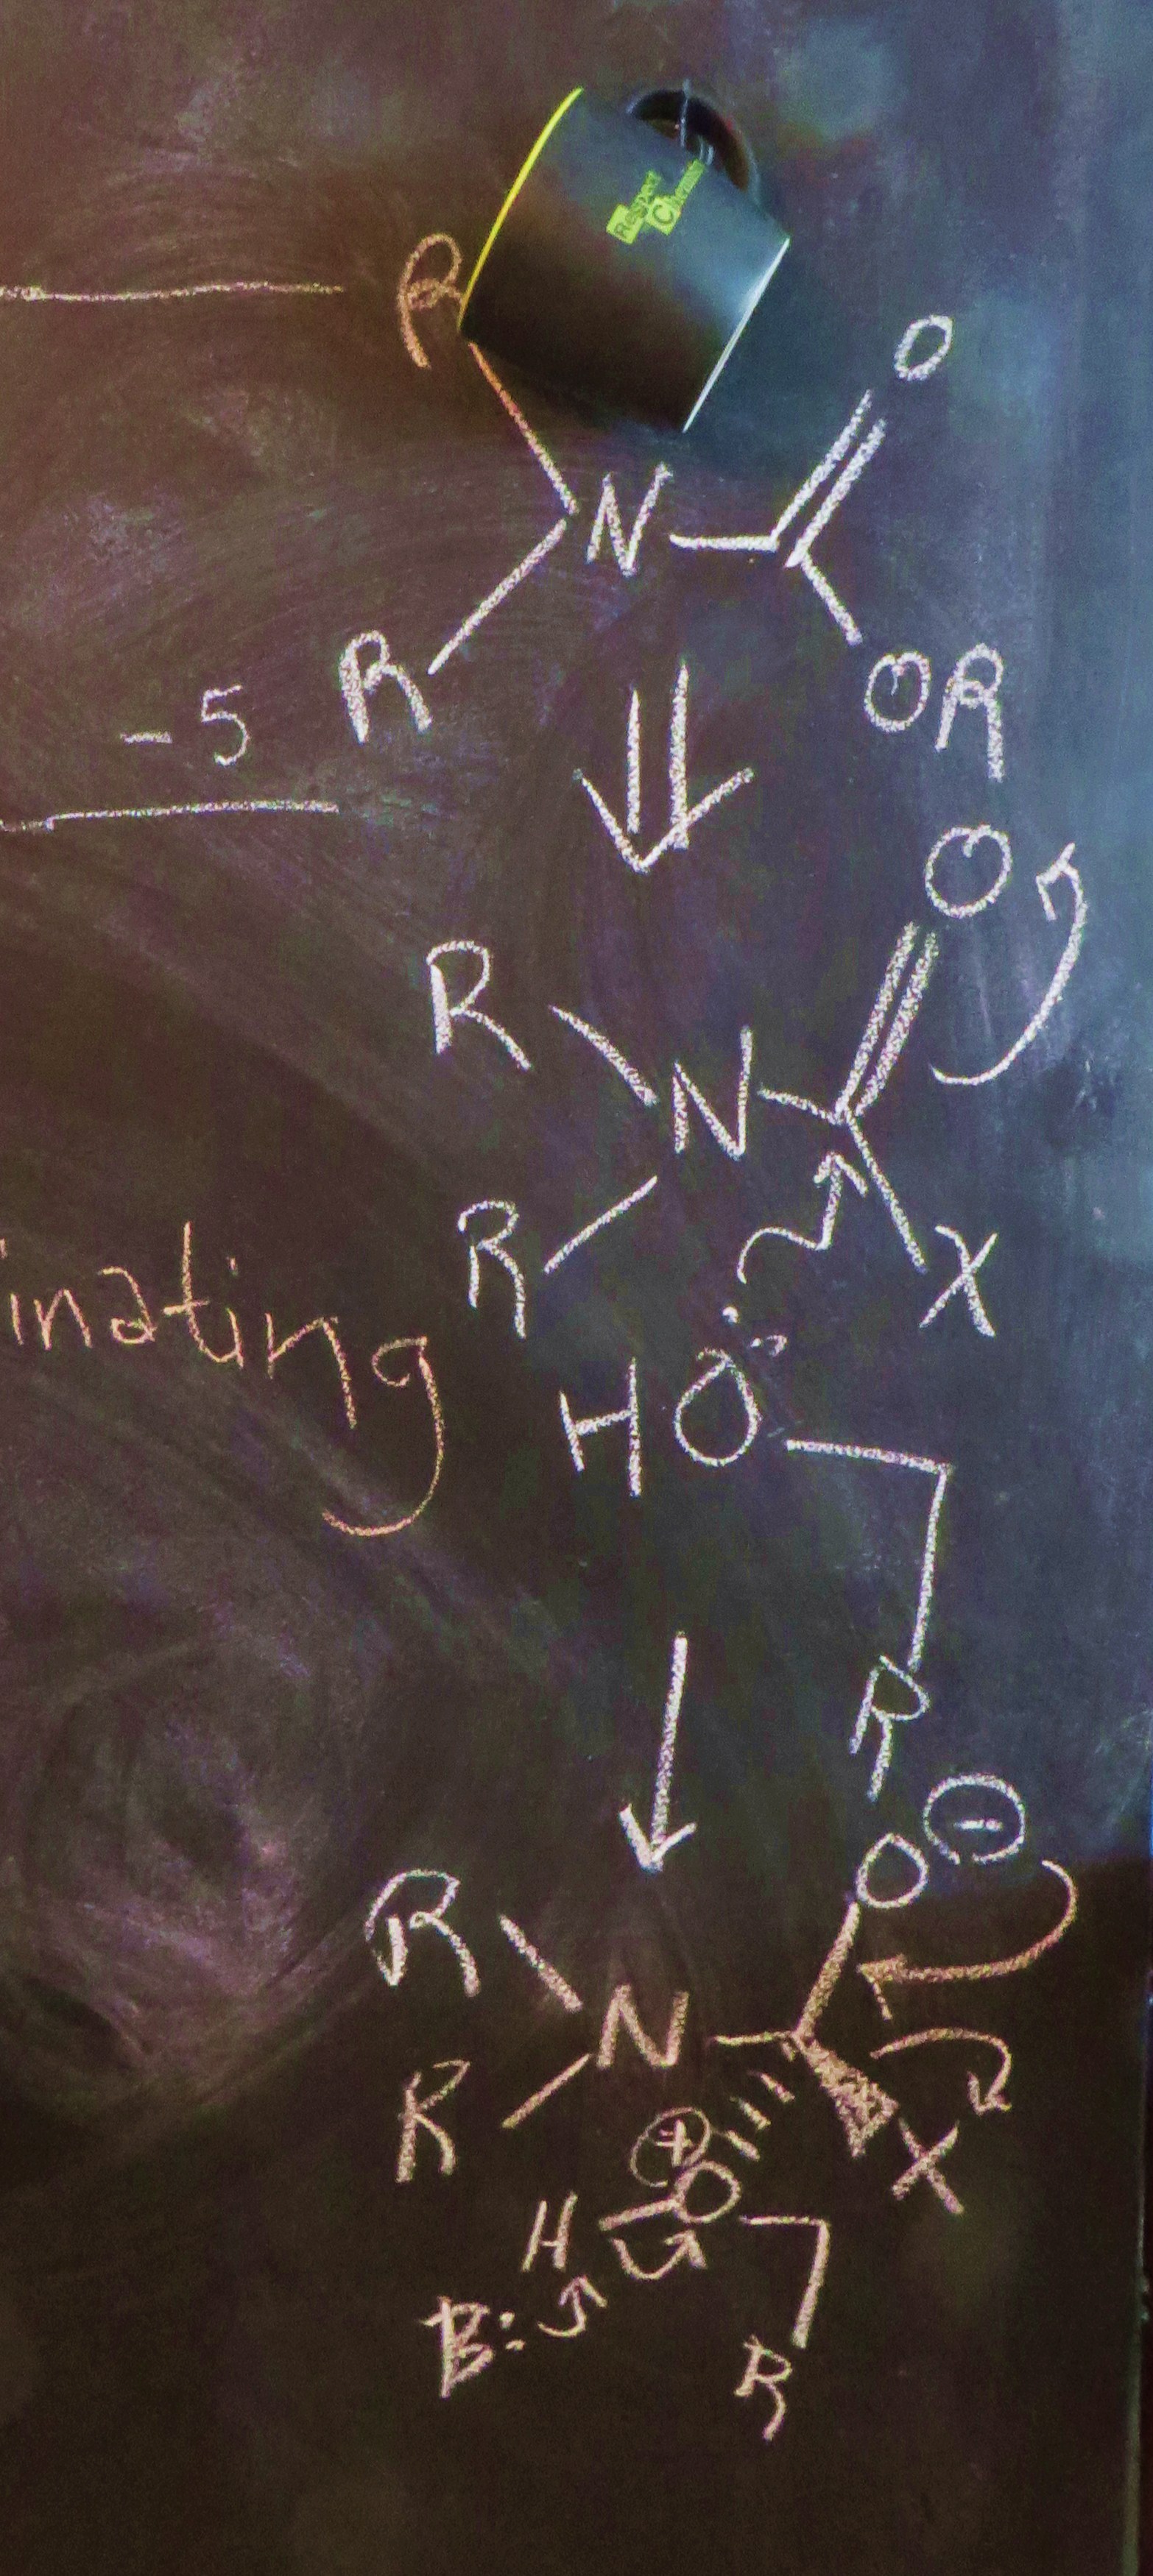 Respect
Chemis
R
O
N
R
OR
-5
O
R
N
R
X
inating
HO:
R
⊖
O
R
N
R
⊕
X
H O
B:
R